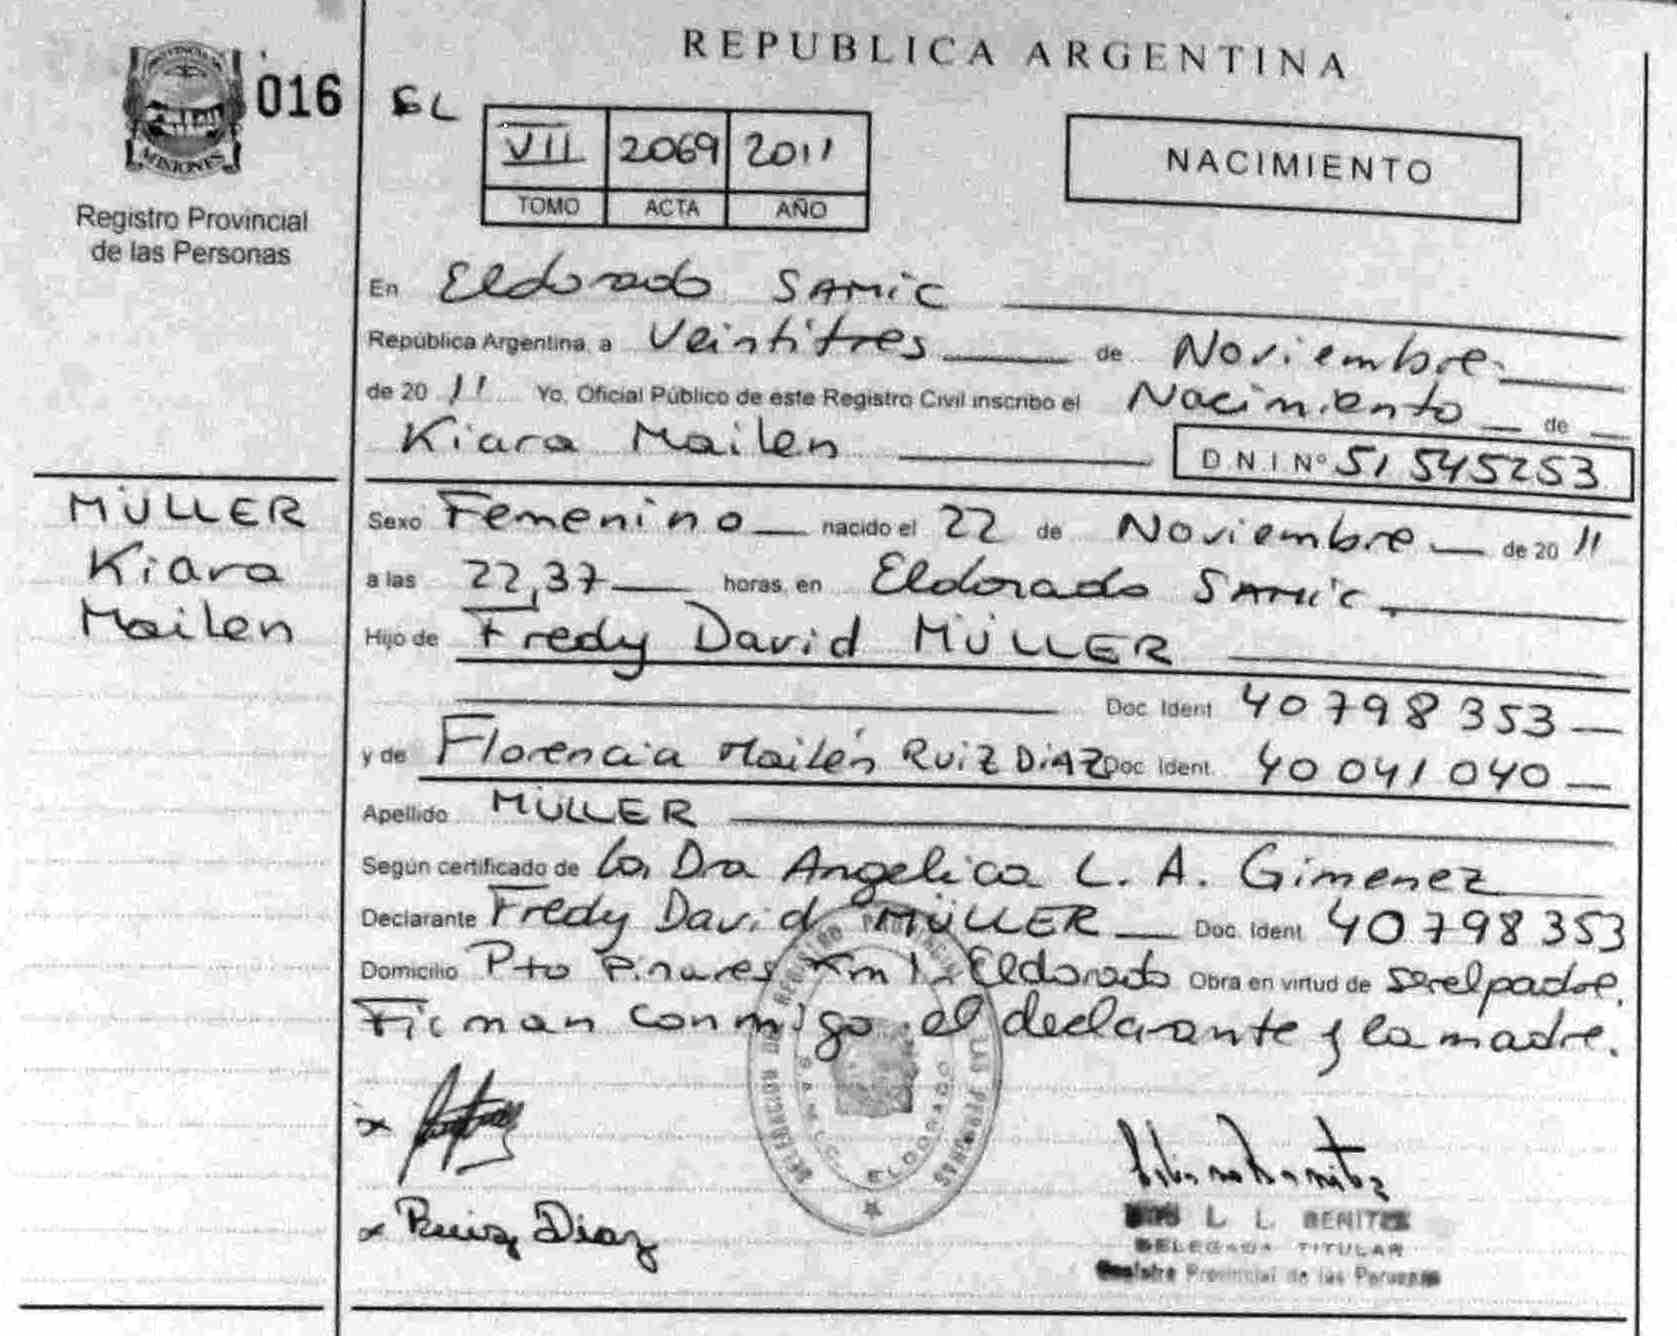 REPUBLICA ARGENTINA
016
MISIONES
Registro Provincial
de las Personas
EL
VII 2069 2011
TOMO ACTA AÑO
NACIMIENTO
En Eldorado SAMIC
República Argentina, a Veintitres de Noviembre
de 2011 Yo, Oficial Público de este Registro Civil inscribo el Nacimiento de
Kiara Mailen D N I Nº 51 545253
MÜLLER
Kiara
Mailen
Sexo Femenino nacido el 22 de Noviembre de 2011
a las 22,37 horas, en Eldorado SAMIC,
Hijo de Fredy David MÜLLER
Doc. Ident. 40798353
y de Florencia Mailén RUIZ DIAZ Doc. Ident. 40041040
Apellido MÜLLER
Según certificado de la Dra Angelica L. A. Gimenez
Declarante Fredy David MÜLLER Doc. Ident. 40798353
Domicilio Pto Pinares Km 1 - Eldorado Obra en virtud de ser el padre.
Firman conmigo el declarante y la madre.
DELEGACION DEL REGISTRO PROVINCIAL DE LAS PERSONAS
S.A.M.I.C. ELDORADO
x
x Ruiz Diaz
L. L. BENITEZ
DELEGADA TITULAR
Registro Provincial de las Personas